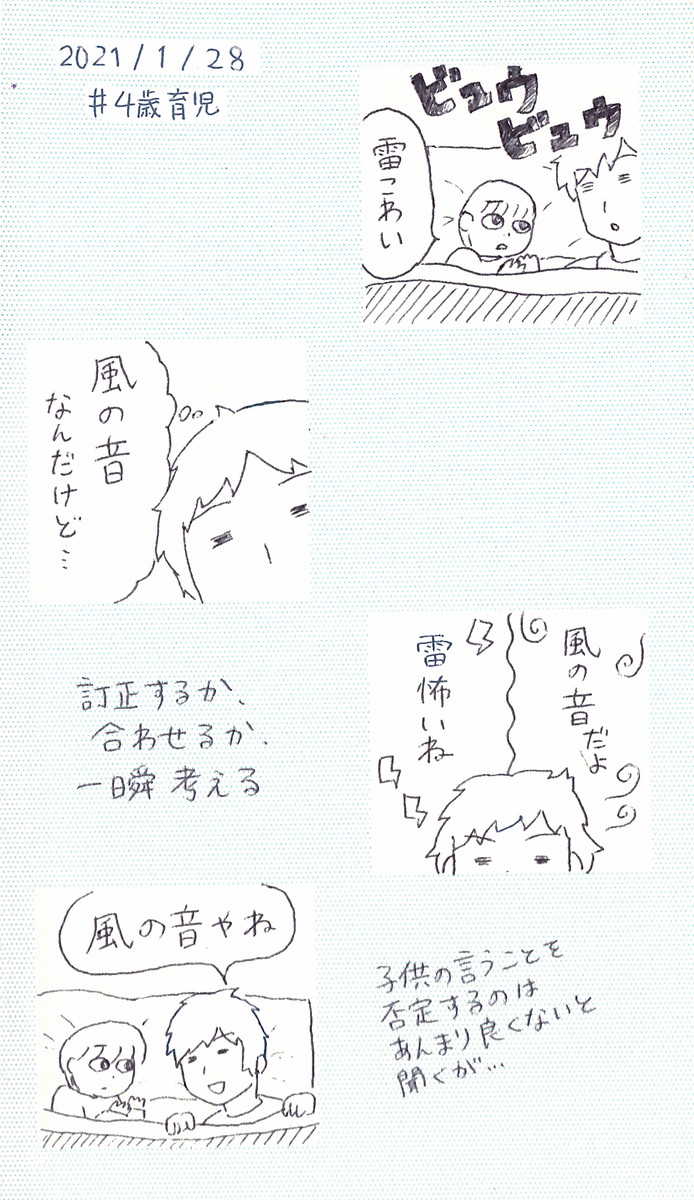 2021/1/28
#4歳育児
ビュウ
ビュウ
雷こわい
風の音
なんだけど…
訂正するか、
合わせるか、
一瞬考える
風の音だよ
雷怖いね
風の音やね
子供の言うことを
否定するのは
あんまり良くないと
聞くが…